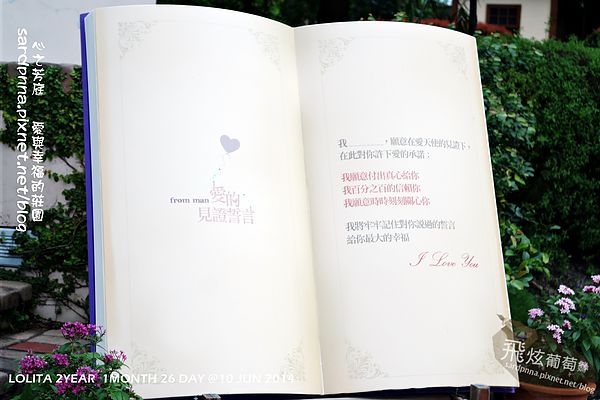 心之芳庭 愛與幸福的莊園
sardpnna.pixnet.net/blog
from man 愛的
見證誓言
我________，願意在愛天使的見證下，
在此對你許下愛的承諾：
我願意付出真心給你
我百分之百的信賴你
我願意時時刻刻關心你
我將牢牢記住對你說過的誓言
給你最大的幸福
I Love You
飛炫葡萄
sardpnna.pixnet.net/blog
LOLITA 2YEAR 1MONTH 26 DAY @10 JUN 2014